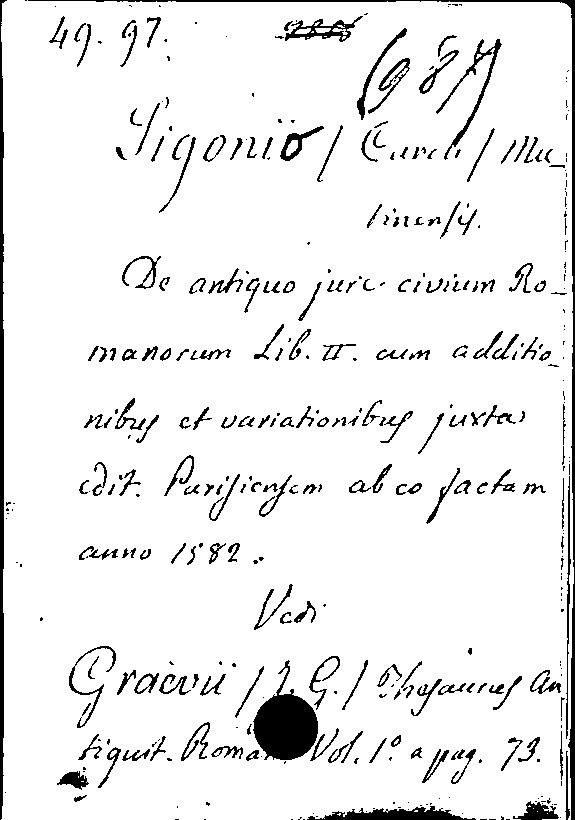 49. 97.
(987)
Sigonio / Caroli / Mu-
tinensis.
De antiquo jure civium Ro-
manorum Lib. II. cum additio-
nibus et variationibus juxta
edit. Parisiensem ab eo factam
anno 1582.
Vedi
Graevii / J. G. / Thesaurus An
tiquit. Roman. Vol. 1º a pag. 73.